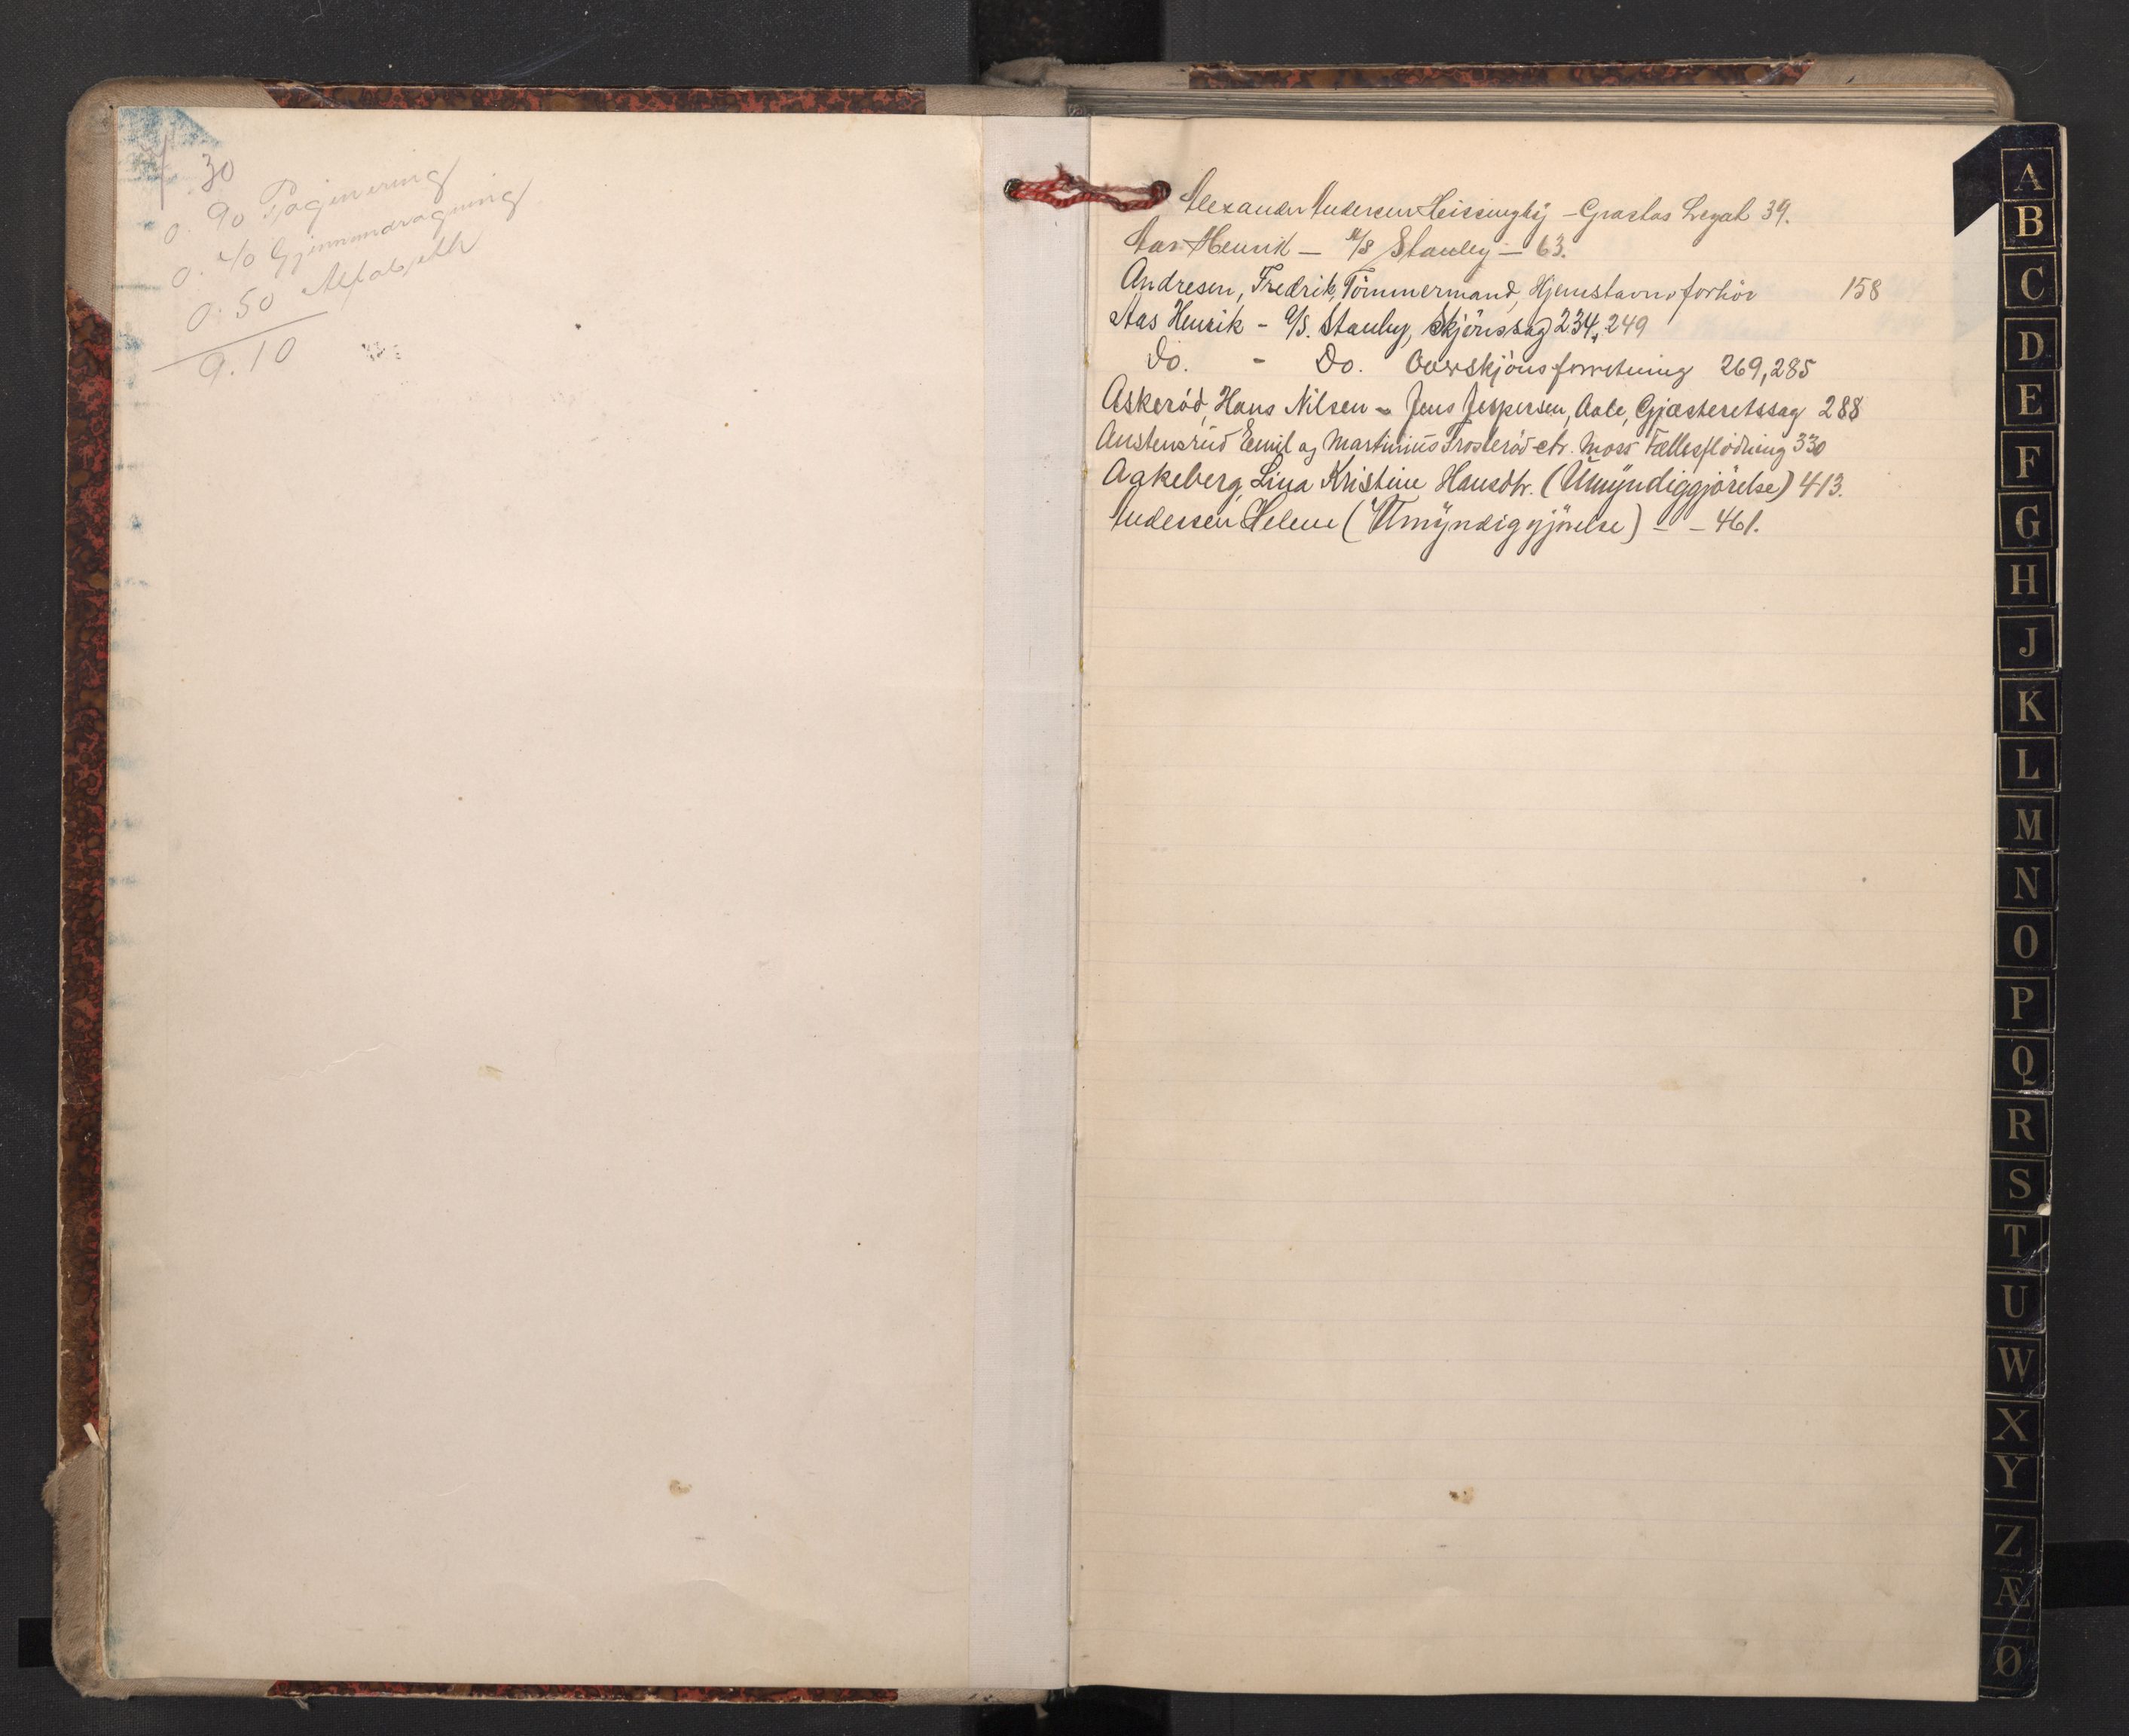 7 30
0. 90 Paginering
0. 40 Gjennemdragning
0. 50 Alfabeth
9.10
Alexander Andersen Heissingby - Grastas Legat 39.
Aas Henrik - A/S Stanley - 63.
Andresen, Fredrik, Tømmermand, Hjemstavnsforhör 158
Aas Henrik - A/S. Stanley, Skjönssag 234, 249
Do. - Do. Overskjönsforretning 269, 285
Askeröd, Hans Nilsen - Jens Jespersen, Aale, Gjæsteretssag 288
Austensrud Emil og Martinius Froskeröd ctr. Moss Fællesflödning 330
Aakeberg, Lina Kristine Hansdtr. (Umyndiggjörelse) 413.
Andersen Helene (Umyndiggjörelse) - - 461.
A
B
C
D
E
F
G
H
J
K
L
M
N
O
P
Q
R
S
T
U
W
X
Y
Z
Æ
Ø